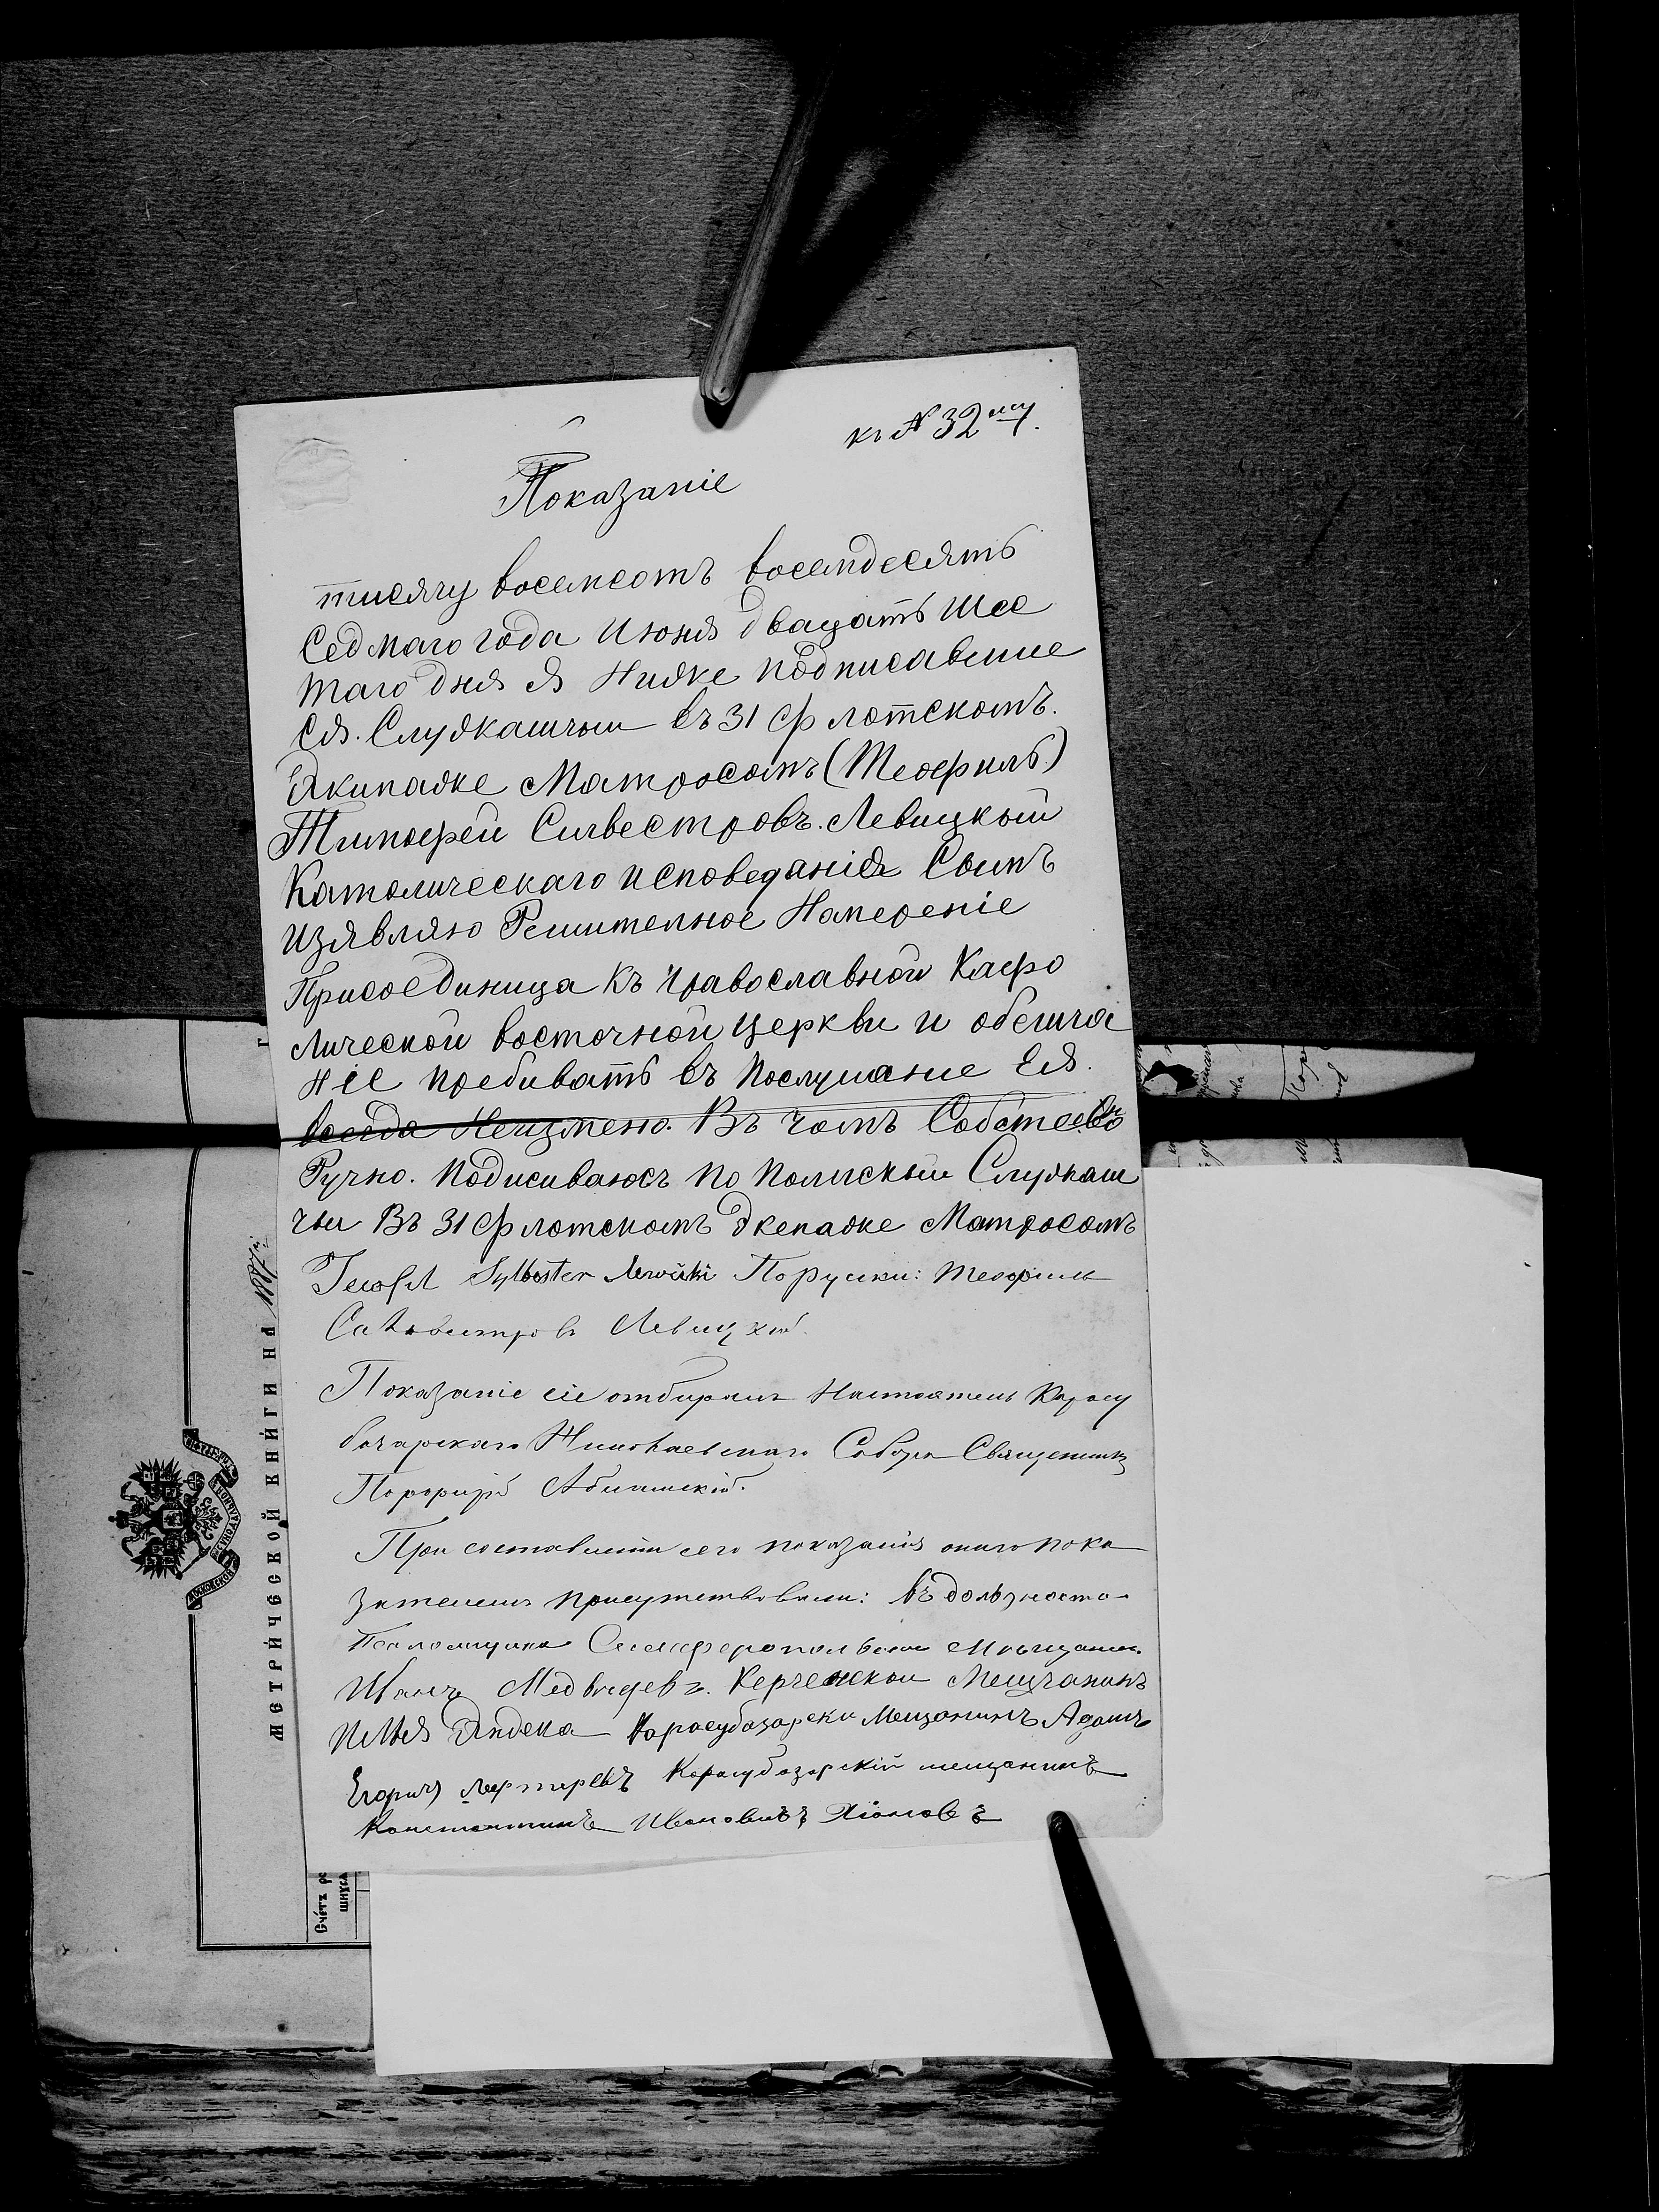 къ № 32му.
Показаніе
тисячу восемсотъ восемдесятъ
Седмаго года Июня двацатъ шес
таго дня Я Ниже подписавшие
ся. Служашчыи въ 31 флотскомъ.
Экипаже Матросомъ (Теофилъ)
Тимофей Силвестровъ. Левицкый
Католическаго исповеданія Симъ
изявляю Решителное Намереніе
Присоединица Къ православной Кафо
лической восточной церкви и обешча
ніе пребиватъ въ послушание Ея.
всегда Неизмено. Въ чомъ Собствено
Ручно. подисиваюсъ по полискыи Служаш
чы Въ 31 флотскомъ экепаже Матросомъ
Теофл Sylbester Lewicki По руски: Теофиль
Сильвестровъ Левицкій.
Показаніе сіе отбиралъ Настоятель Карасу
базарскаго Николаевскаго Собора Священникъ
Порфирій
При составленіи сего показанія онаго пока
зателемъ присутствовали: въ должности
Псаломщика Симферопольскій Мѣщанин.
Иванъ Медведевъ. Керченскои Мещчанинъ
Илья Карасубазарски Мещанинъ Адамъ
Егорич Карасубазарский мещанинъ
Константинъ Ивановичъ
МЕТРИ́ЧЕСКОЙ КНИ́ГИ НА
МОСКОВСКОЙ
Счётъ